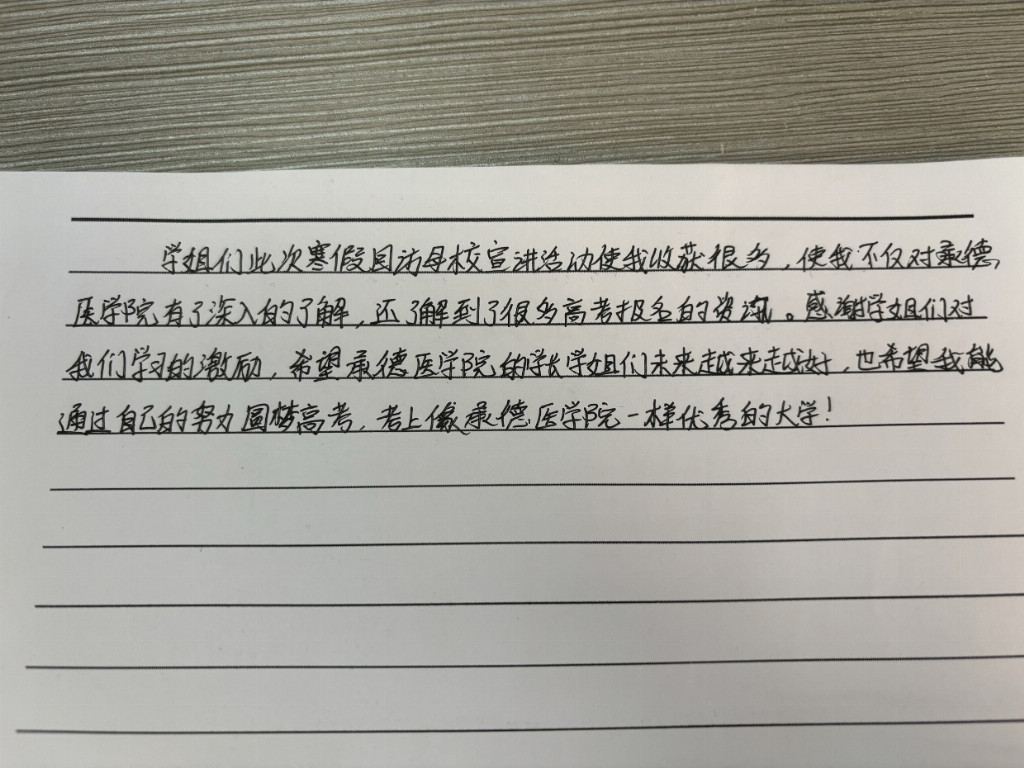 学姐们此次寒假回访母校宣讲活动使我收获很多，使我不仅对承德
医学院有了深入的了解，还了解到了很多高考报名的资讯。感谢学姐们对
我们学习的激励，希望承德医学院的学长学姐们未来越来越好，也希望我能
通过自己的努力圆梦高考，考上像承德医学院一样优秀的大学！